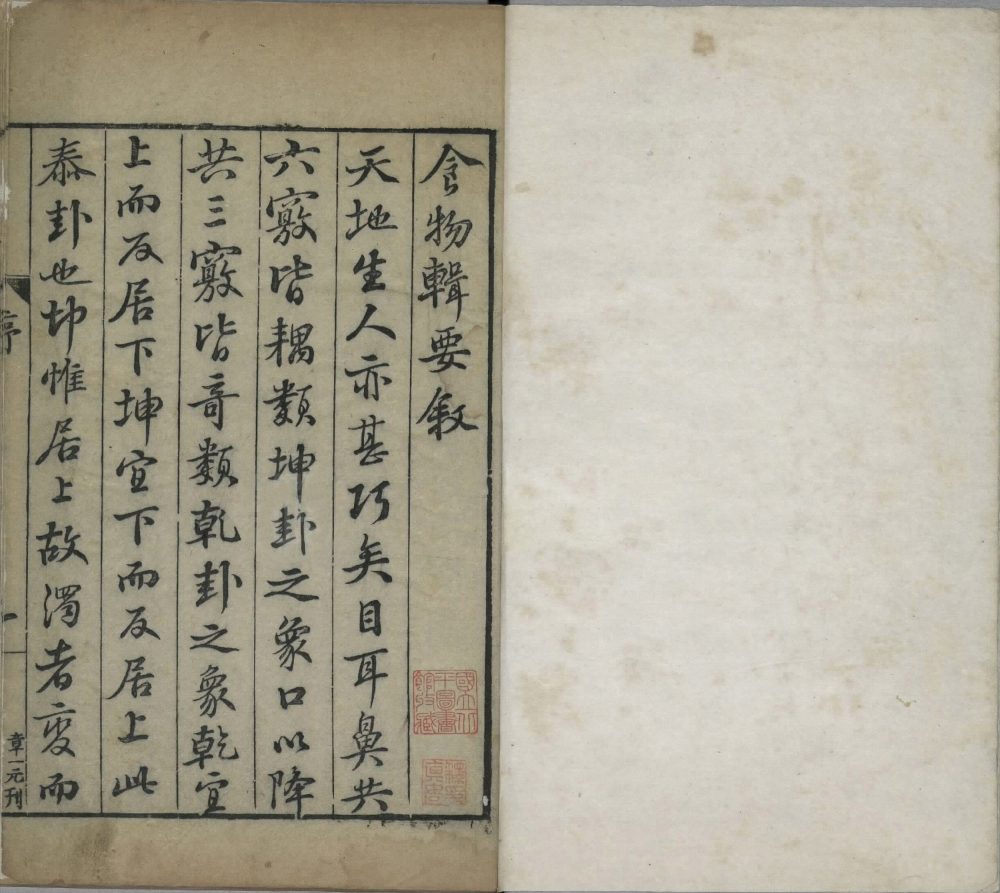 食物輯要敘
天地生人亦甚巧矣目耳鼻共
六竅皆耦類坤卦之象口以降
共三竅皆竒類乾卦之象乾宜
上而反居下坤宜下而反居上此
泰卦也坤惟居上故濁者变而
序
一
章一元刊
國立北
平圖書
館收藏